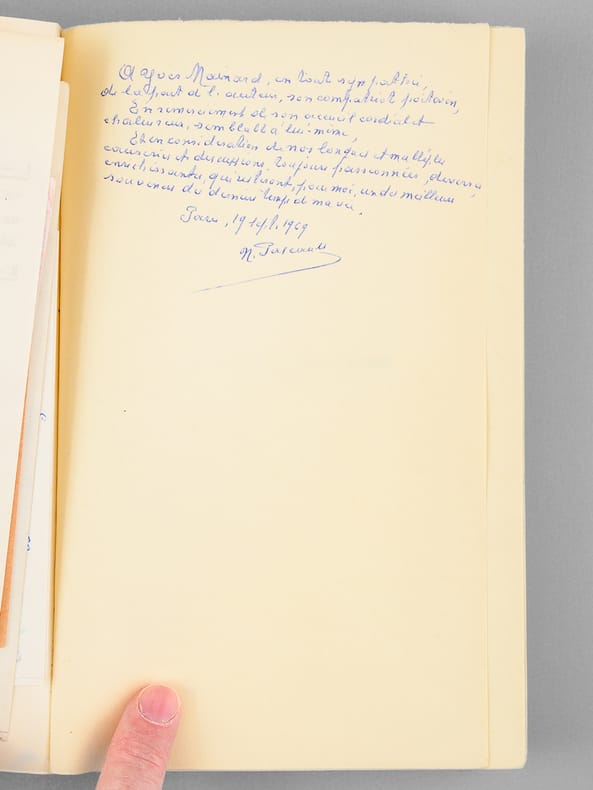 A Yves Mainard, en toute sympathie,
de la part de l'auteur, son compatriote poitevin,
En remerciement de son accueil cordial et
chaleureux, semblable à lui-même,
Et en considération de nos longues et multiples
causeries et discussions, toujours passionnées, diverses,
enrichissantes, qui resteront, pour moi, un des meilleurs
souvenirs du dernier temps de ma vie.
Paris, 19 sept. 1969